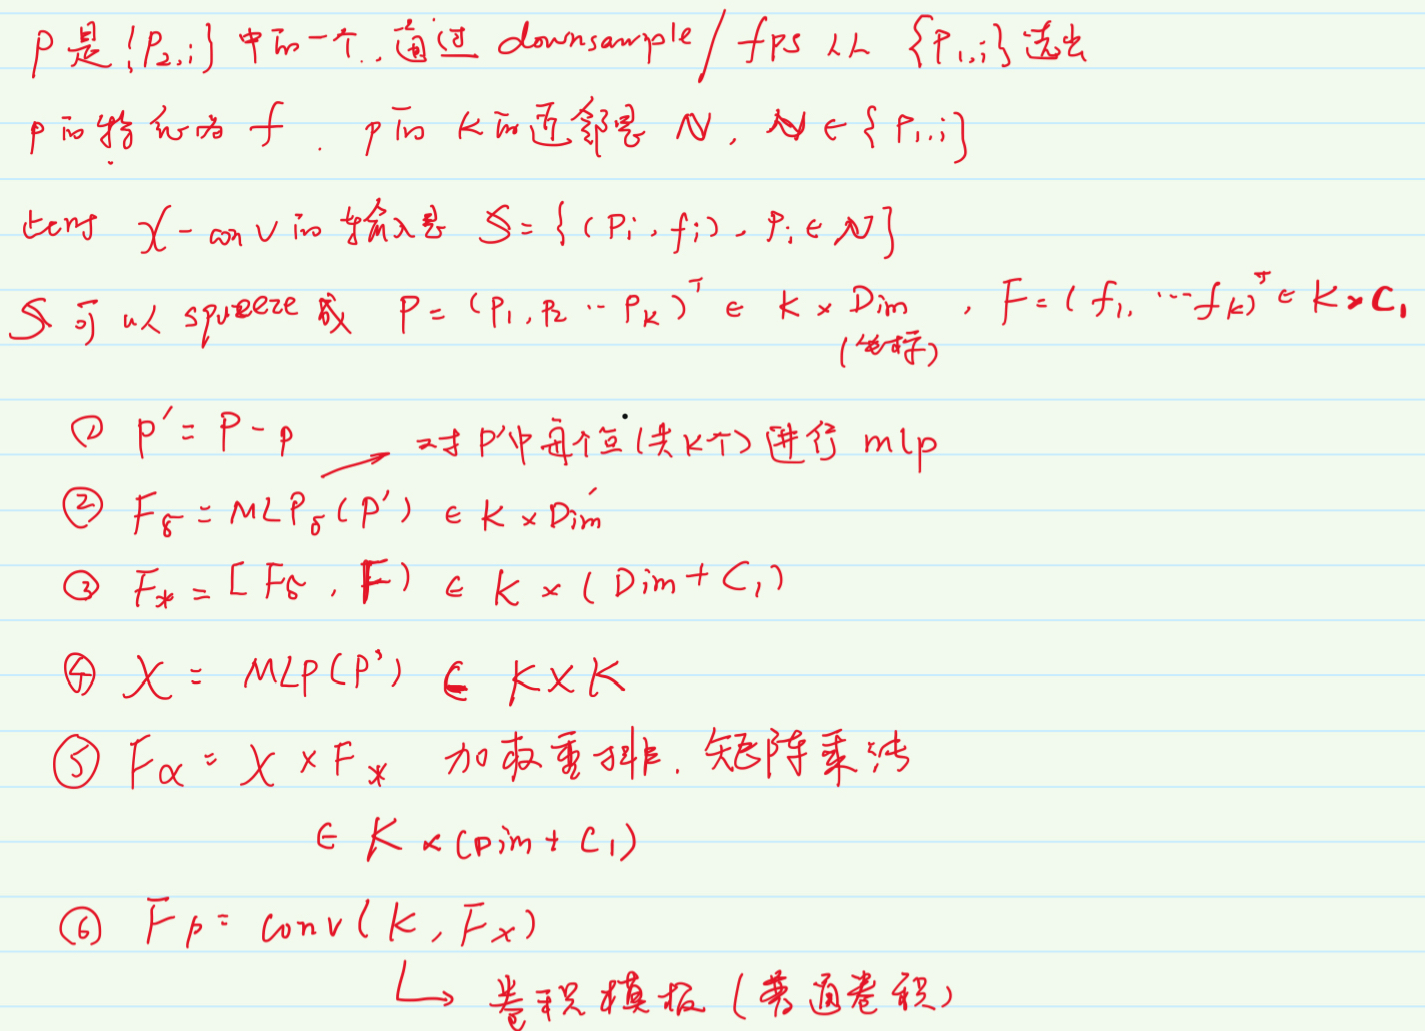 p是{P₂,ᵢ}中的一个.,通过 downsample/fps 从 {P₁,ᵢ}选出
p的特征为 f . p的 K的近邻是 N, N ∈ {P₁,ᵢ}
此时 X-conv的输入是 S = {(Pᵢ, fᵢ), Pᵢ ∈ N}
S 可以 squeeze 成 P = (P₁, P₂ … P_K)ᵀ ∈ K × Dim , F = (f₁, … f_K)ᵀ ∈ K × C₁
(坐标)
① P′ = P - p → 对P′中每个点(共K个)进行 mlp
② F_δ = MLP_δ(P′) ∈ K × Dim′
③ F_* = [F_δ, F) ∈ K × (Dim + C₁)
④ X = MLP(P′) ∈ K × K
⑤ F_α = X × F_* 加权重排. 矩阵乘法
∈ K × (Dim + C₁)
⑥ F_p = conv(K, F_x)
↳ 卷积模板(普通卷积)